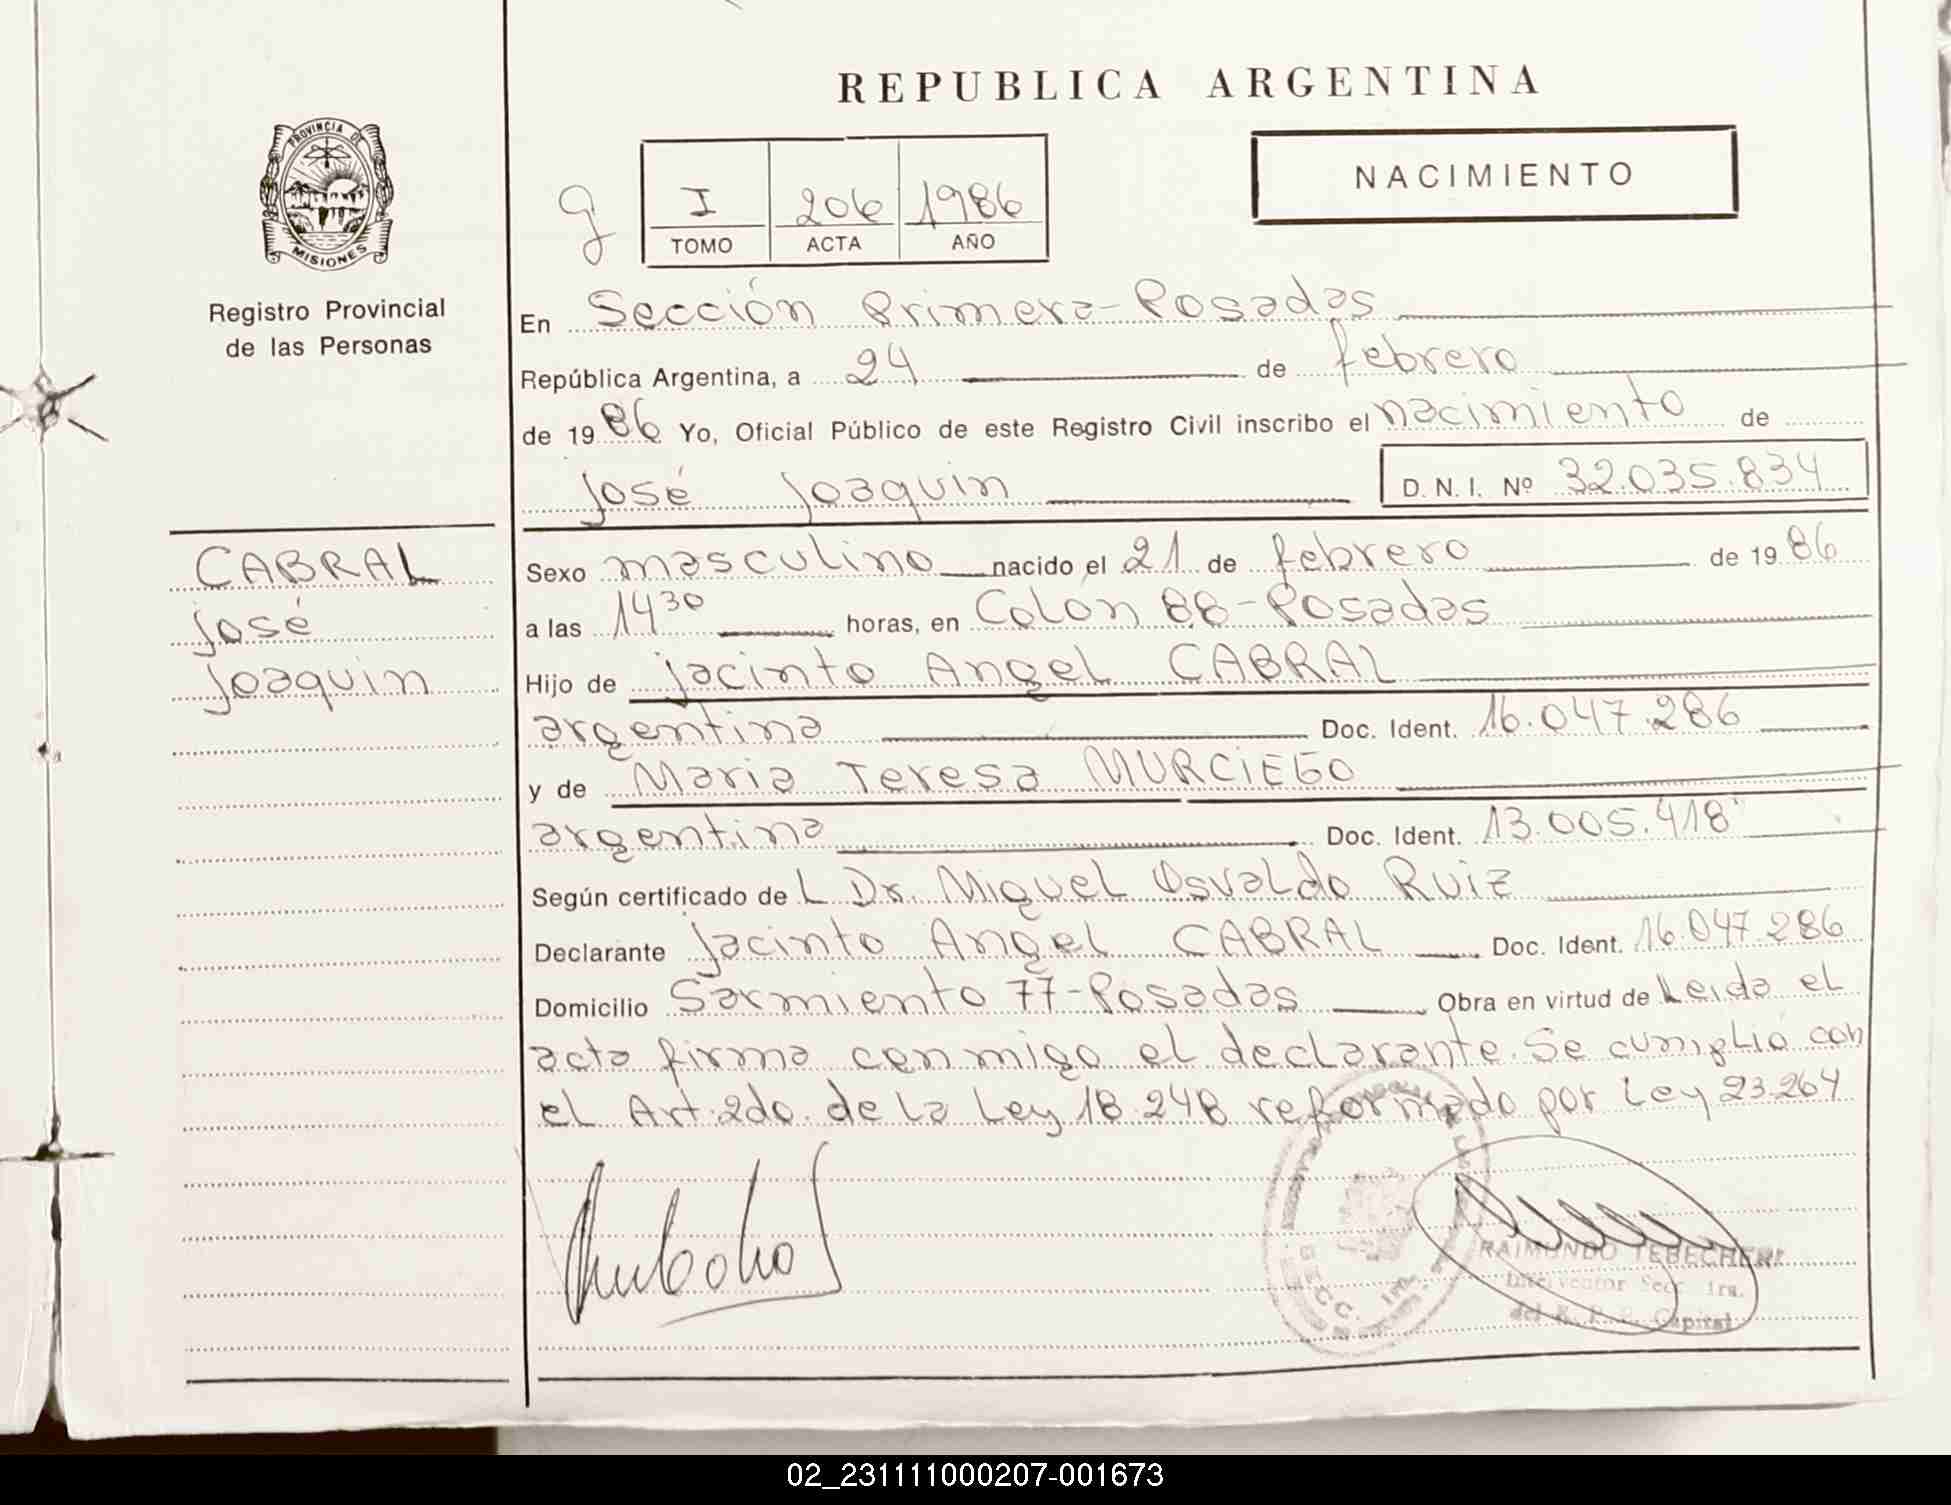 REPUBLICA ARGENTINA
PROVINCIA DE
MISIONES
Registro Provincial
de las Personas
I 206 1986
TOMO ACTA AÑO
NACIMIENTO
En Sección Primera-Posadas
República Argentina, a 24 de febrero
de 19 86 Yo, Oficial Público de este Registro Civil inscribo el nacimiento de
José Joaquin D. N. I. Nº 32.035.834
CABRAL
José
Joaquin
Sexo masculino nacido el 21 de febrero de 19 86
a las 14 30 horas, en Colón 88-Posadas
Hijo de Jacinto Angel CABRAL
argentina Doc. Ident. 16.047.286
y de Maria Teresa MURCIEGO
argentina Doc. Ident. 13.005.418
Según certificado de L Dr. Miguel Osvaldo Ruiz
Declarante Jacinto Angel CABRAL Doc. Ident. 16.047.286
Domicilio Sarmiento 77-Posadas Obra en virtud de Leida el
acta firma conmigo el declarante. Se cumplió con
el Art. 2do. de la Ley 18.248 reformado por Ley 23.264
RAIMUNDO TEBECHERI
Interventor Secc. 1ra.
del R. P. P. Capital
02_231111000207-001673